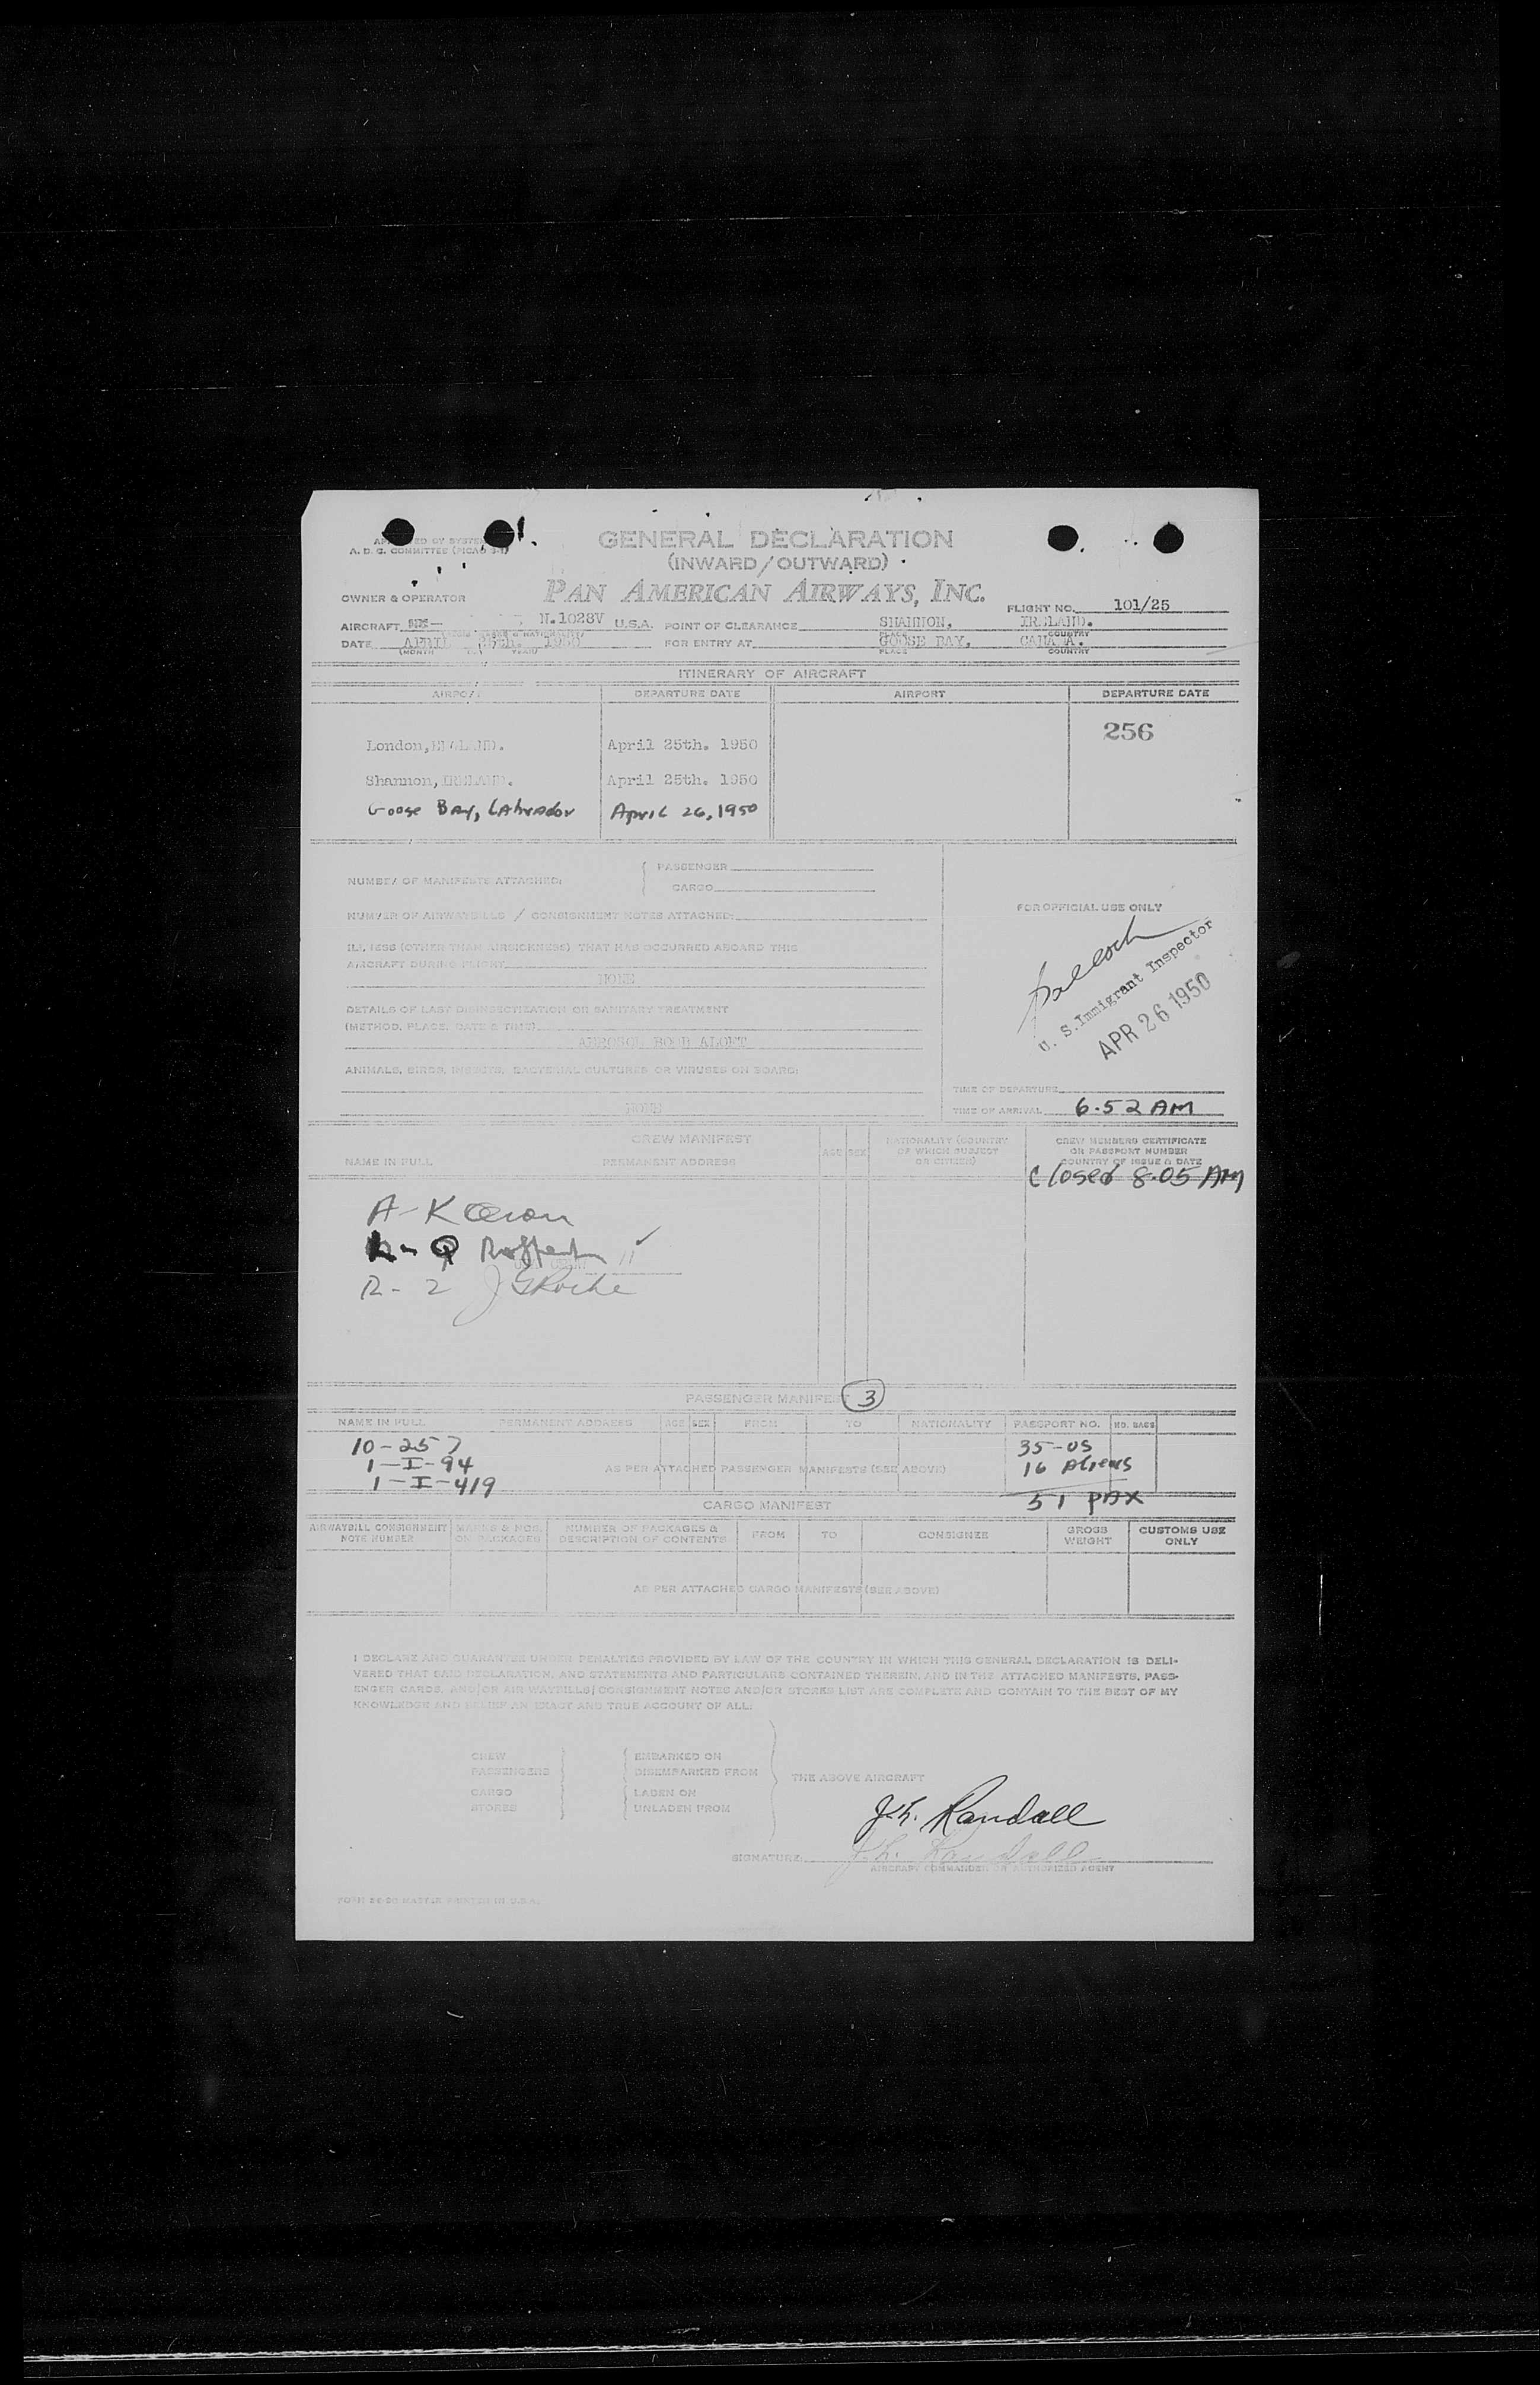 GENERAL DECLARATION
(INWARD/OUTWARD)
A. D. G. COMMITTEE (PICAO
PAN AMERICAN AIRWAYS, INC.
OWNER & OPERATOR
FLIGHT NO. 101/25
AIRCRAFT N.1028V U.S.A. POINT OF CLEARANCE SHANNON, IRELAND.
DATE APRIL 25th. 1950 FOR ENTRY AT GOOSE BAY, CANADA.
(MONTH YEAR) PLACE COUNTRY
ITINERARY OF AIRCRAFT
AIRPORT DEPARTURE DATE AIRPORT DEPARTURE DATE
256
London, ENGLAND. April 25th. 1950
Shannon, IRELAND. April 25th. 1950
Goose Bay, Labrador April 26, 1950
NUMBER OF MANIFESTS ATTACHED: PASSENGER
CARGO
NUMBER OF AIRWAYBILLS / CONSIGNMENT NOTES ATTACHED:
FOR OFFICIAL USE ONLY
ILLNESS (OTHER THAN AIRSICKNESS) THAT HAS OCCURRED ABOARD THIS
AIRCRAFT DURING FLIGHT
NONE
U. S. Immigrant Inspector
APR 26 1950
DETAILS OF LAST DISINSECTIZATION OR SANITARY TREATMENT
(METHOD, PLACE, DATE & TIME)
AEROSOL BOMB ALOFT
ANIMALS, BIRDS, INSECTS, BACTERIAL CULTURES OR VIRUSES ON BOARD:
NONE
TIME OF DEPARTURE
TIME OF ARRIVAL 6.52 AM
CREW MANIFEST
NAME IN FULL PERMANENT ADDRESS AGE SEX NATIONALITY (COUNTRY OF WHICH SUBJECT OR CITIZEN) CREW MEMBERS CERTIFICATE OR PASSPORT NUMBER COUNTRY OF ISSUE & DATE
Closed 8.05 AM
R- 2 J G Roche
PASSENGER MANIFEST 3
NAME IN FULL PERMANENT ADDRESS AGE SEX FROM TO NATIONALITY PASSPORT NO. NO. BAGS
10-257 35-US
1-I-94 AS PER ATTACHED PASSENGER MANIFESTS (SEE ABOVE) 16 Aliens
1-I-419
51 PAX
CARGO MANIFEST
AIRWAYBILL CONSIGNMENT NOTE NUMBER MARKS & NOS. ON PACKAGES NUMBER OF PACKAGES & DESCRIPTION OF CONTENTS FROM TO CONSIGNEE GROSS WEIGHT CUSTOMS USE ONLY
AS PER ATTACHED CARGO MANIFESTS (SEE ABOVE)
I DECLARE AND GUARANTEE UNDER PENALTIES PROVIDED BY LAW OF THE COUNTRY IN WHICH THIS GENERAL DECLARATION IS DELI-
VERED THAT SAID DECLARATION, AND STATEMENTS AND PARTICULARS CONTAINED THEREIN, AND IN THE ATTACHED MANIFESTS, PASS-
ENGER CARDS, AND/OR AIR WAYBILLS/CONSIGNMENT NOTES AND/OR STORES LIST ARE COMPLETE AND CONTAIN TO THE BEST OF MY
KNOWLEDGE AND BELIEF AN EXACT AND TRUE ACCOUNT OF ALL:
CREW EMBARKED ON
PASSENGERS DISEMBARKED FROM
THE ABOVE AIRCRAFT
CARGO LADEN ON
STORES UNLADEN FROM
J.L. Randall
SIGNATURE J.L. Randall
AIRCRAFT COMMANDER OR AUTHORIZED AGENT